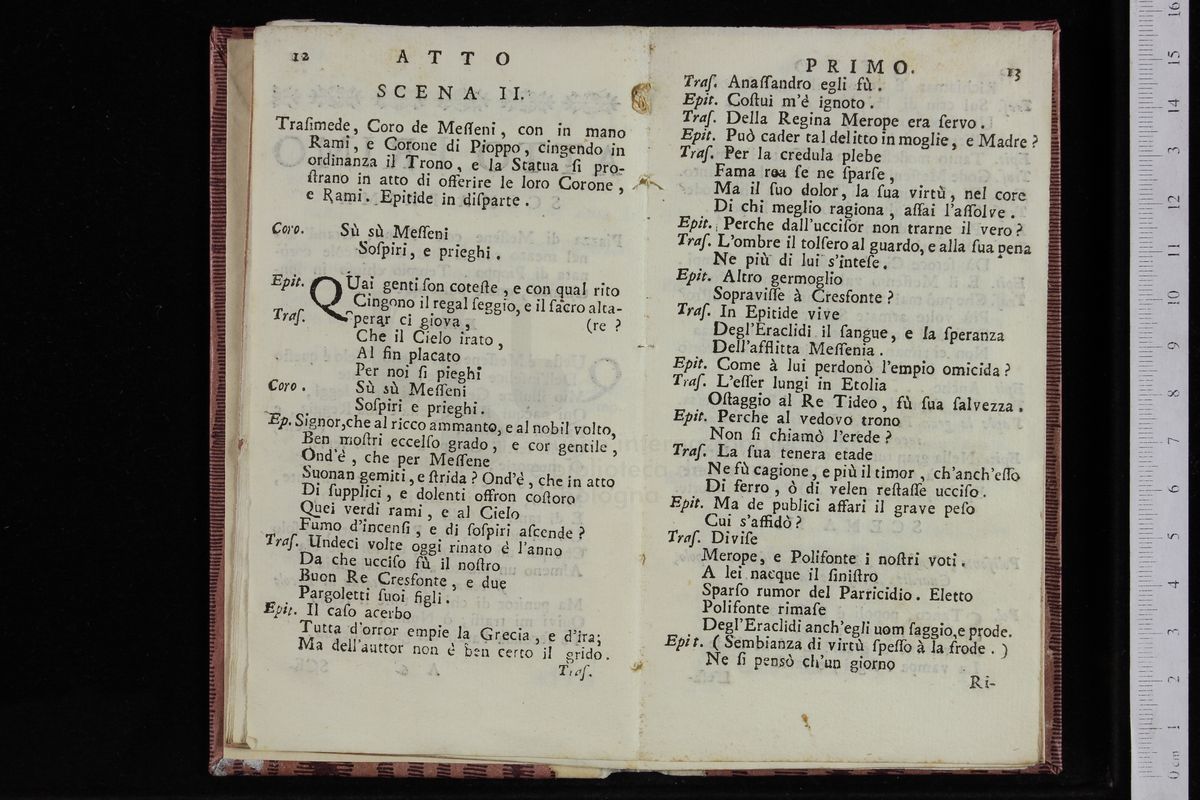 12 ATTO
SCENA II.
Traſimede, Coro de Meſſeni, con in mano
Rami, e Corone di Pioppo, cingendo in
ordinanza il Trono, e la Statua ſi pro-
ſtrano in atto di offerire le loro Corone,
e Rami. Epitide in diſparte.
Coro. Sù sù Meſſeni
Soſpiri, e prieghi.
Epit. QUai genti ſon coteſte, e con qual rito
Cingono il regal ſeggio, e il ſacro alta-
Traſ. Sperar ci giova, (re?
Che il Cielo irato,
Al fin placato
Per noi ſi pieghi
Coro. Sù sù Meſſeni
Soſpiri e prieghi.
Ep. Signor, che al ricco ammanto, e al nobil volto,
Ben moſtri eccelſo grado, e cor gentile,
Ond'è, che per Meſſene
Suonan gemiti, e ſtrida? Ond'è, che in atto
Di ſupplici, e dolenti offron coſtoro
Quei verdi rami, e al Cielo
Fumo d'incenſi, e di ſoſpiri aſcende?
Traſ. Undeci volte oggi rinato è l'anno
Da che ucciſo fù il noſtro
Buon Re Cresfonte, e due
Pargoletti ſuoi figli.
Epit. Il caſo acerbo
Tutta d'orror empie la Grecia, e d'ira;
Ma dell'auttor non è ben certo il grido.
Traſ.
PRIMO. 13
Traſ. Anaſſandro egli fù.
Epit. Coſtui m'è ignoto.
Traſ. Della Regina Merope era ſervo.
Epit. Può cader tal delitto in moglie, e Madre?
Traſ. Per la credula plebe
Fama rea ſe ne ſparſe,
Ma il ſuo dolor, la ſua virtù, nel core
Di chi meglio ragiona, aſſai l'aſſolve.
Epit. Perche dall'ucciſor non trarne il vero?
Traſ. L'ombre il tolſero al guardo, e alla ſua pena
Ne più di lui s'inteſe.
Epit. Altro germoglio
Sopraviſſe à Cresfonte?
Traſ. In Epitide vive
Degl'Eraclidi il ſangue, e la ſperanza
Dell'afflitta Meſſenia.
Epit. Come à lui perdonò l'empio omicida?
Traſ. L'eſſer lungi in Etolia
Oſtaggio al Re Tideo, fù ſua ſalvezza.
Epit. Perche al vedovo trono
Non ſi chiamò l'erede?
Traſ. La ſua tenera etade
Ne fù cagione, e più il timor, ch'anch'eſſo
Di ferro, ò di velen reſtaſſe ucciſo.
Epit. Ma de publici affari il grave peſo
Cui s'affidò?
Traſ. Diviſe
Merope, e Polifonte i noſtri voti.
A lei nacque il ſiniſtro
Sparſo rumor del Parricidio. Eletto
Polifonte rimaſe
Degl'Eraclidi anch'egli uom ſaggio, e prode.
Epit. (Sembianza di virtù ſpeſſo à la frode.)
Ne ſi pensò ch'un giorno
Ri-